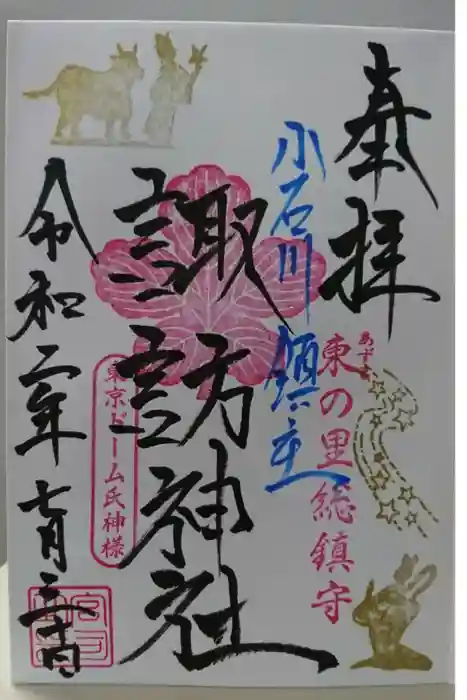 奉拝
あずま
東の里総鎮守
小石川鎮主
諏訪神社
東京ドーム氏神様
令和二年七月三十日